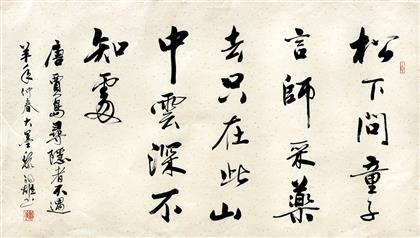 松下問童子
言師采藥
去只在此山
中雲深不
知處
唐賈島尋隱者不遇
羊年仲春大墨